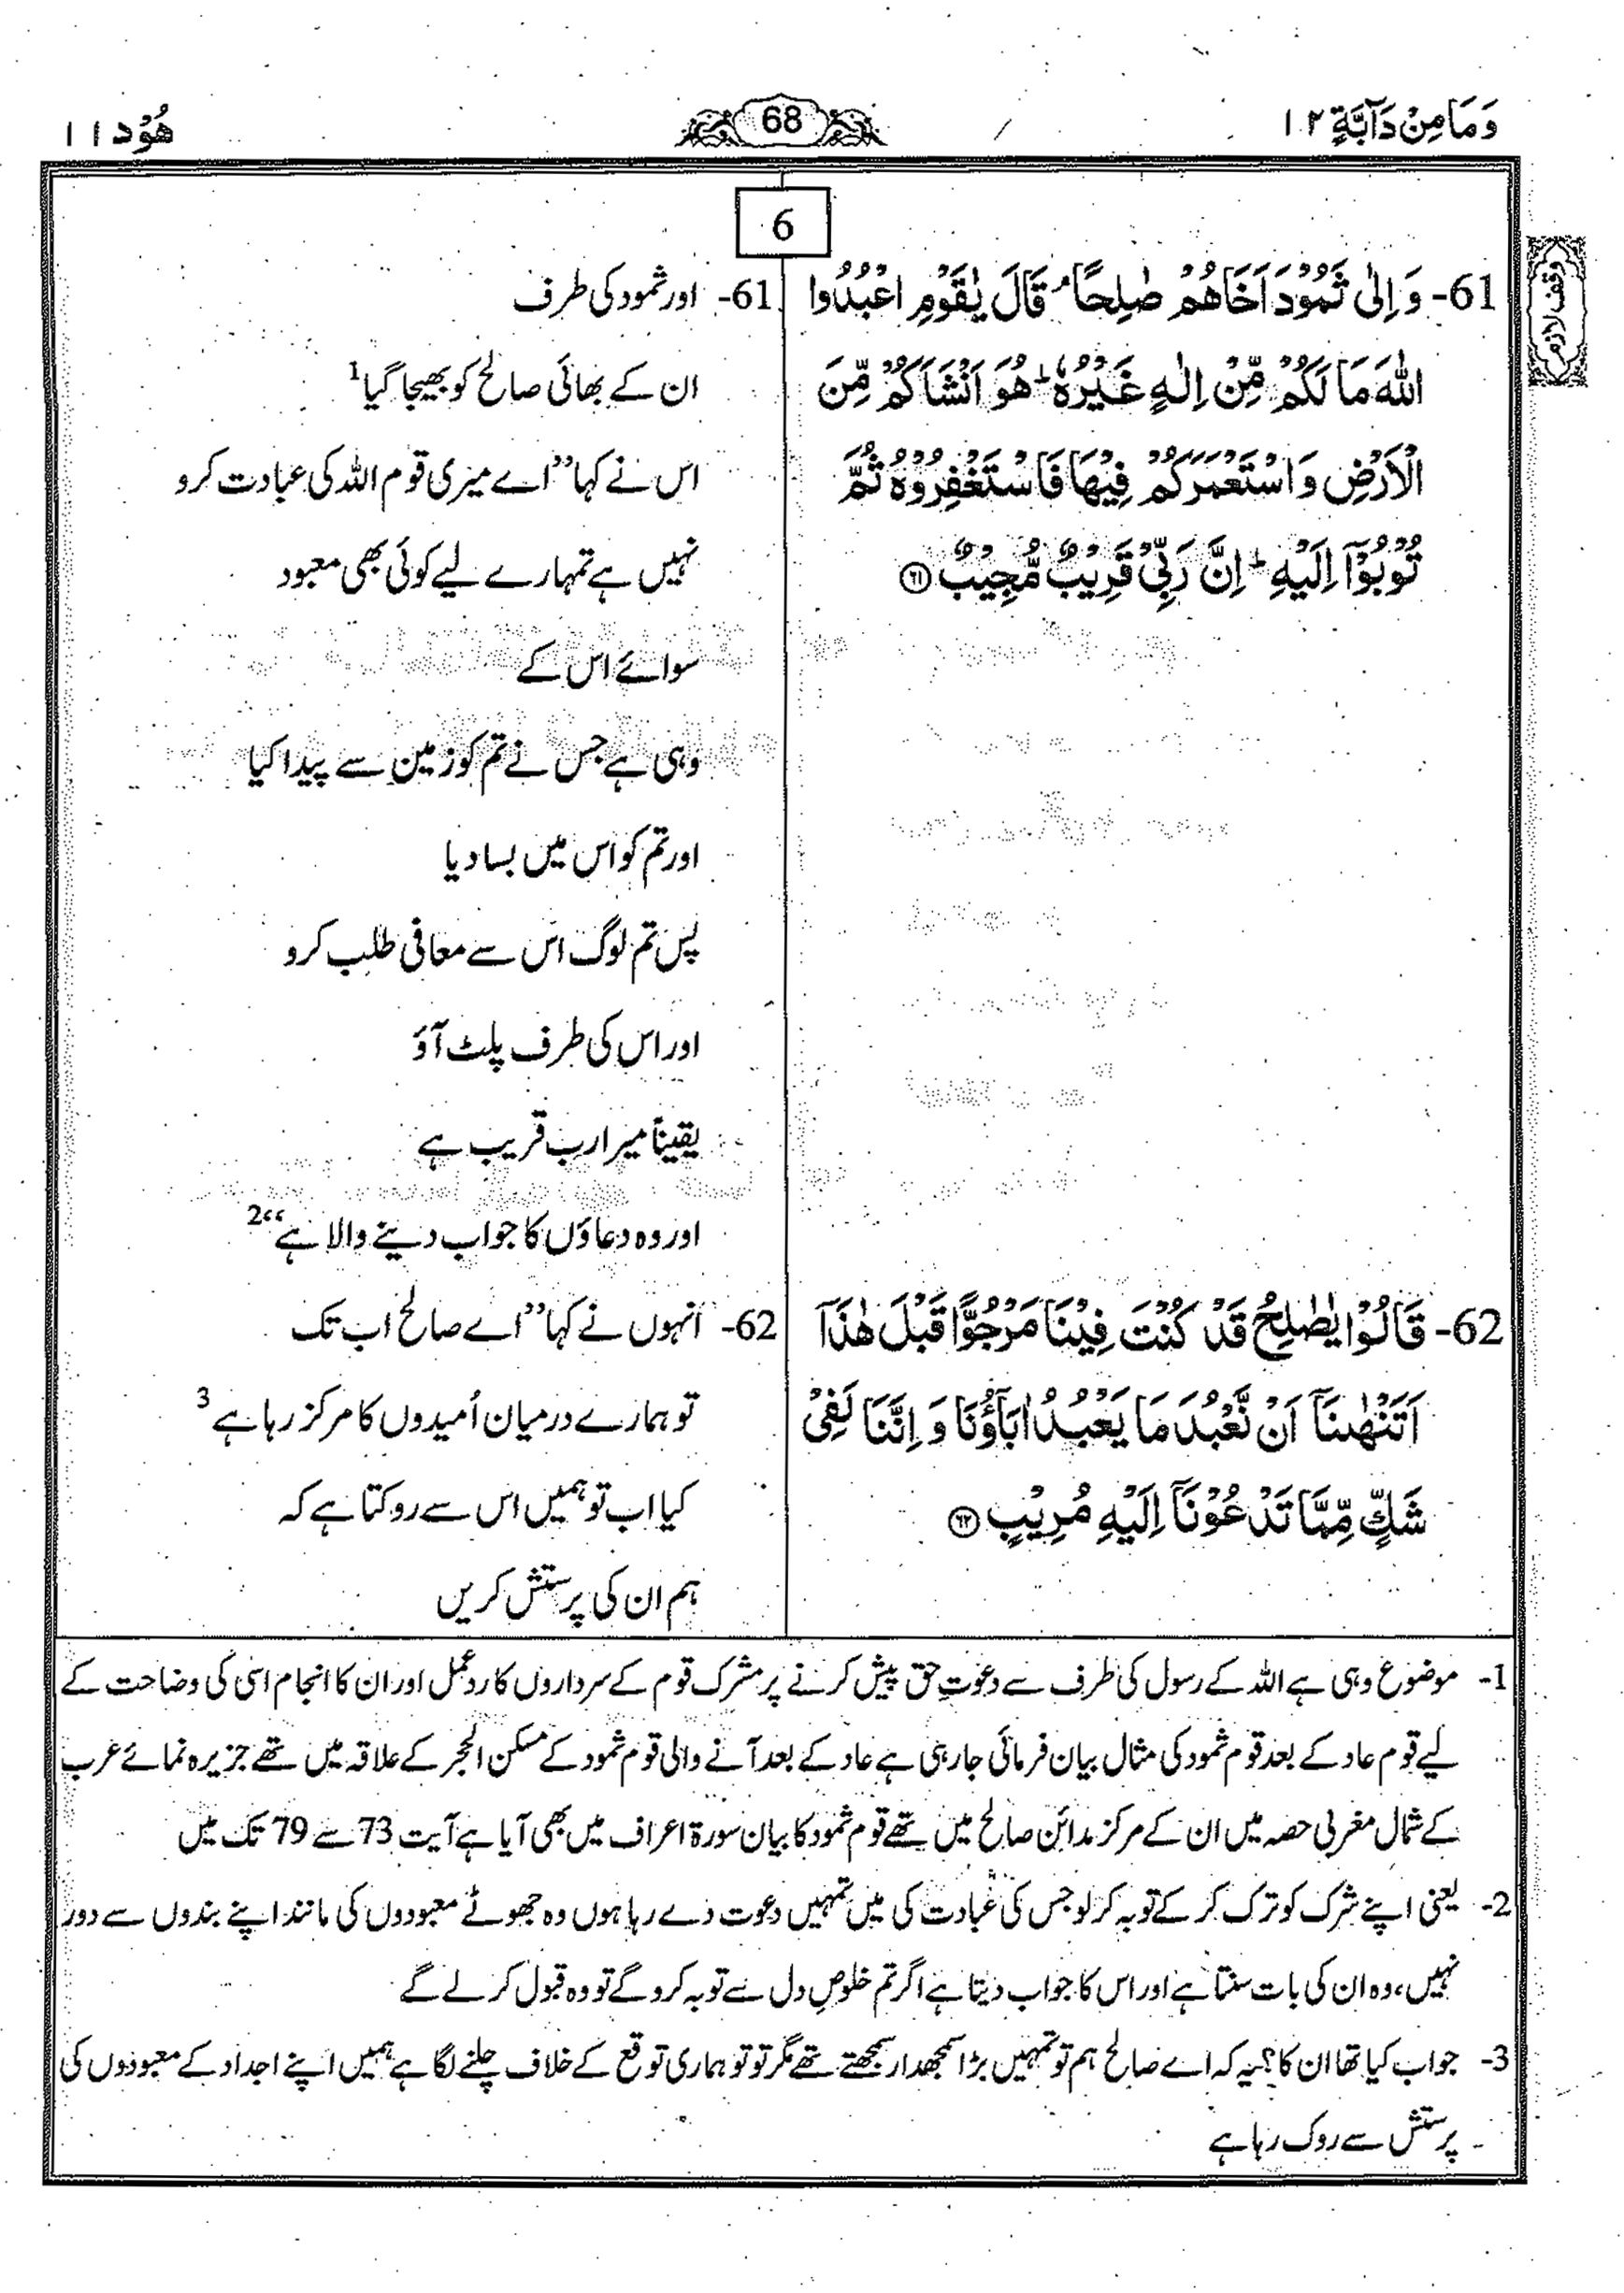 وَمَا مِنْ دَآبَّةٍ ۱۲
68
هُوْد ۱۱
وقف لازم
6
61- وَ اِلٰى ثَمُوْدَ اَخَاهُمْ صٰلِحًا ۘ قَالَ يٰقَوْمِ اعْبُدُوا
اللّٰهَ مَا لَكُمْ مِّنْ اِلٰهٍ غَيْرُهٗ ؕ هُوَ اَنْشَاَكُمْ مِّنَ
الْاَرْضِ وَ اسْتَعْمَرَكُمْ فِيْهَا فَاسْتَغْفِرُوْهُ ثُمَّ
تُوْبُوْۤا اِلَيْهِ ؕ اِنَّ رَبِّيْ قَرِيْبٌ مُّجِيْبٌ ﴿۶۱﴾
61- اور ثمود کی طرف
ان کے بھائی صالح کو بھیجا گیا1
اس نے کہا ”اے میری قوم اللہ کی عبادت کرو
نہیں ہے تمہارے لیے کوئی بھی معبود
سوائے اس کے
وہی ہے جس نے تم کو زمین سے پیدا کیا
اور تم کو اس میں بسا دیا
پس تم لوگ اس سے معافی طلب کرو
اور اس کی طرف پلٹ آؤ
یقیناً میرا رب قریب ہے
اور وہ دعاؤں کا جواب دینے والا ہے“2
62- قَالُوْا يٰصٰلِحُ قَدْ كُنْتَ فِيْنَا مَرْجُوًّا قَبْلَ هٰذَاۤ
اَتَنْهٰىنَاۤ اَنْ نَّعْبُدَ مَا يَعْبُدُ اٰبَآؤُنَا وَ اِنَّنَا لَفِيْ
شَكٍّ مِّمَّا تَدْعُوْنَاۤ اِلَيْهِ مُرِيْبٍ ﴿۶۲﴾
62- انہوں نے کہا ”اے صالح اب تک
تو ہمارے درمیان اُمیدوں کا مرکز رہا ہے3
کیا اب تو ہمیں اس سے روکتا ہے کہ
ہم ان کی پرستش کریں
1- موضوع وہی ہے اللہ کے رسول کی طرف سے دعوتِ حق پیش کرنے پر مشرک قوم کے سرداروں کا ردعمل اور ان کا انجام اسی کی وضاحت کے
لیے قوم عاد کے بعد قوم ثمود کی مثال بیان فرمائی جا رہی ہے عاد کے بعد آنے والی قوم ثمود کے مسکن الحجر کے علاقہ میں تھے جزیرہ نمائے عرب
کے شمال مغربی حصہ میں ان کے مرکز مدائن صالح میں تھے قوم ثمود کا بیان سورۃ اعراف میں بھی آیا ہے آیت 73 سے 79 تک میں
2- یعنی اپنے شرک کو ترک کر کے توبہ کر لو جس کی عبادت کی میں تمہیں دعوت دے رہا ہوں وہ جھوٹے معبودوں کی مانند اپنے بندوں سے دور
نہیں، وہ ان کی بات سنتا ہے اور اس کا جواب دیتا ہے اگر تم خلوصِ دل سے توبہ کرو گے تو وہ قبول کر لے گے
3- جواب کیا تھا ان کا؟ یہ کہ اے صالح ہم تو تمہیں بڑا سمجھدار سمجھتے تھے مگر تو تو ہماری توقع کے خلاف چلنے لگا ہے ہمیں اپنے اجداد کے معبودوں کی
پرستش سے روک رہا ہے